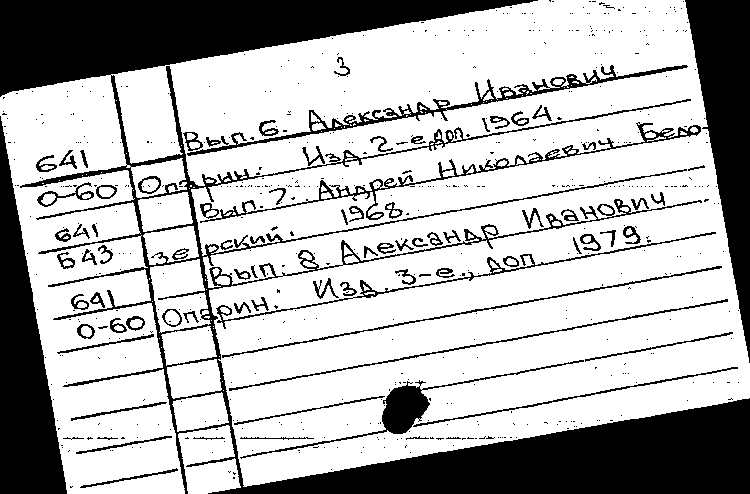 3
641 Вып. 6. Александр Иванович
О-60 Опарин. Изд. 2-е, доп. 1964.
641 Вып. 7. Андрей Николаевич Бело-
Б43 зерский. 1968.
641 Вып. 8. Александр Иванович
О-60 Опарин. Изд. 3-е, доп. 1979.